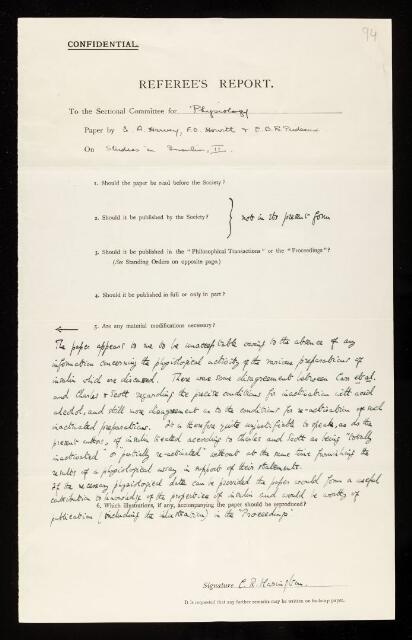 94
CONFIDENTIAL.
REFEREE'S REPORT.
To the Sectional Committee for Physiology
Paper by B. A. Harvey, F.O. Howitt & E.B.R. Prideaux
On Studies in Insulin, II.
1. Should the paper be read before the Society?
2. Should it be published by the Society? } not in its present form
3. Should it be published in the "Philosophical Transactions" or the "Proceedings"?
(See Standing Orders on opposite page.)
4. Should it be published in full or only in part?
5. Are any material modifications necessary?
The paper appears to me to be unacceptable owing to the absence of any
information concerning the physiological activity of the various preparations of
insulin which are discussed. There was some disagreement between Carr et al.
and Charles & Scott regarding the precise conditions for inactivation with acid
alcohol, and still more disagreement as to the conditions for re-activation of such
inactivated preparations. It is therefore quite unjustifiable to speak, as do the
present authors, of insulin treated according to Charles and Scott as being "totally
inactivated" or "partially re-activated" without at the same time furnishing the
results of a physiological assay in support of their statements.
If the necessary physiological data can be provided the paper would form a useful
contribution to knowledge of the properties of insulin and would be worthy of
6. Which illustrations, if any, accompanying the paper should be reproduced?
publication (including the illustration) in the "Proceedings"
Signature C. R. Harington.
It is requested that any further remarks may be written on foolscap paper.